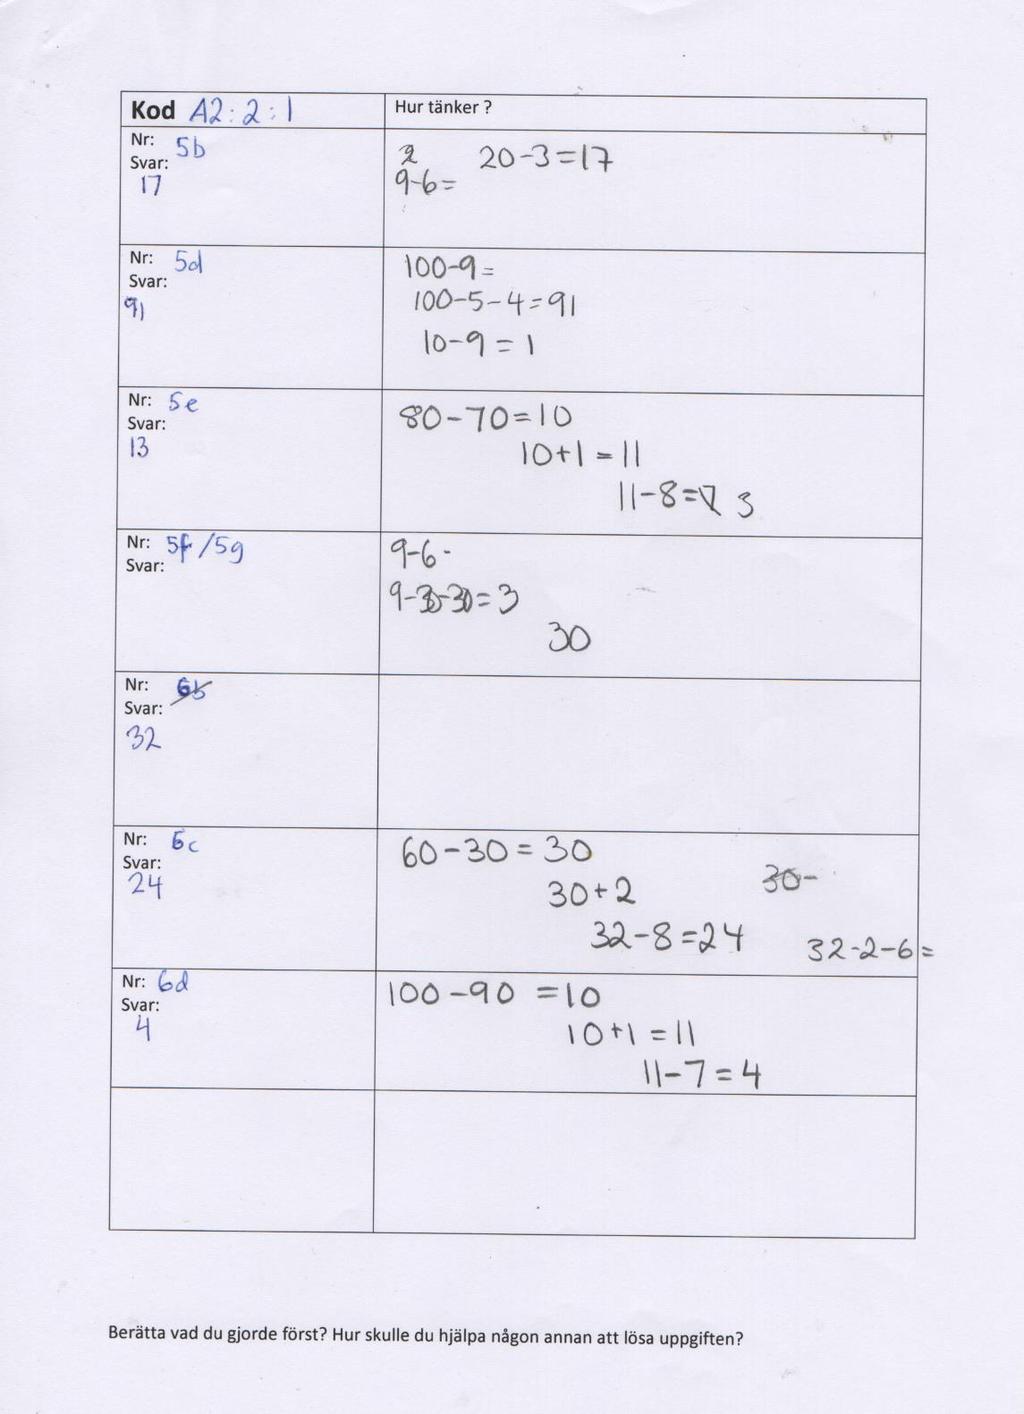 Kod A2:2:1 Hur tänker ?
Nr: 5b
Svar:
17
2 20-3=17
9-6=
Nr: 5d
Svar:
91
100-9=
100-5-4=91
10-9=1
Nr: 5e
Svar:
13
80-70=10
10+1=11
11-8= 3
Nr: 5f/5g
Svar:
9-6-
9-30-30=3
30
Nr: 6b
Svar:
32
Nr: 6c
Svar:
24
60-30=30
30+2 30-
32-8=24 32-2-6=
Nr: 6d
Svar:
4
100-90 =10
10+1=11
11-7=4
Berätta vad du gjorde först? Hur skulle du hjälpa någon annan att lösa uppgiften?